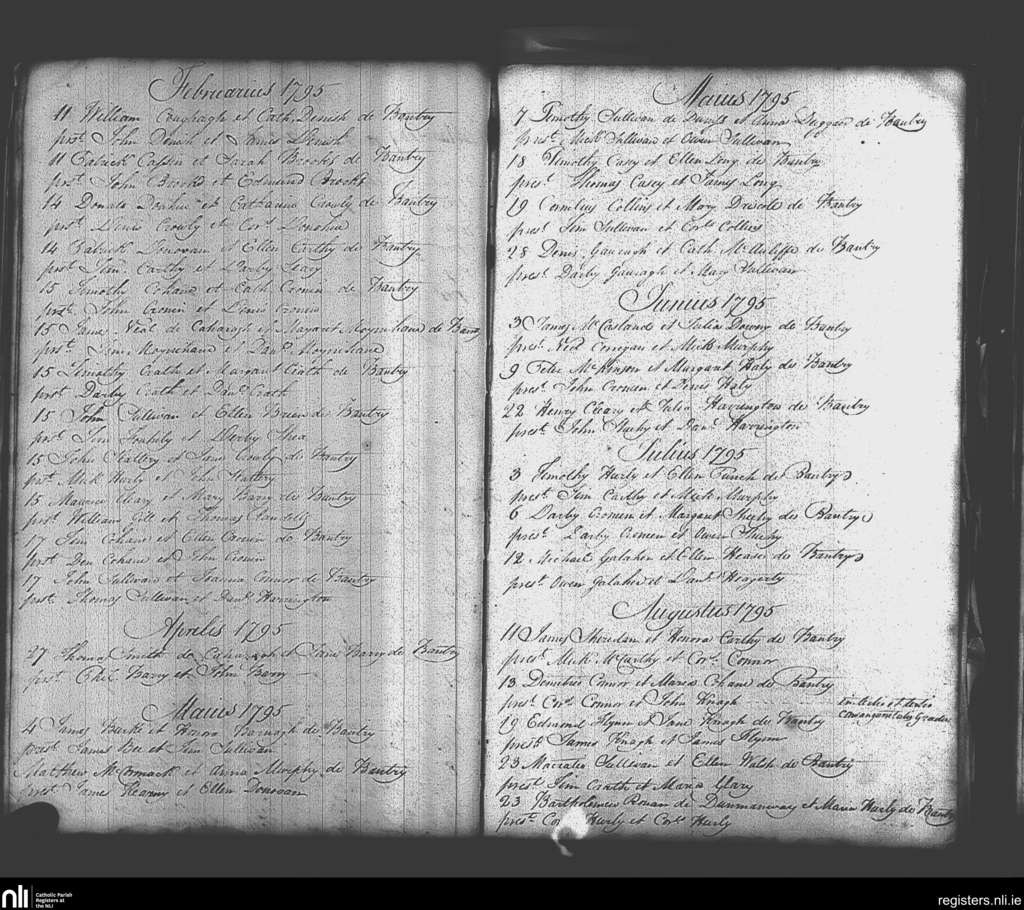 Februarius 1795
11 William Coughagh et Cath. Denish de Bantry
prst. John Denish et James Denish
11 Patrick Cassin et Sarah Brooks de Bantry
prst. John Brooks et Edmund Brooks
14 Donato Donahue et Catharina Crowly de Bantry
prst. Denis Crowly et Cors. Donohue
14 Patrick Donovan et Ellen Carthy de Bantry
prst. Jim Carthy et Darby Leary
15 Timothy Cohane et Cath Cronin de Bantry
prst. John Cronin et Denis Cronin
15 Neal de Caharagh et Margaret Moynihane de Bantry
prst. Jim Moynihane et Danl. Moynihane
15 Timothy Crath et Margaret Crath de Bantry
prst. Darby Crath et Danl. Crath
15 John Sullivan et Ellen Brien de Bantry
prst. Jim et Derby Shea
15 John Slattery et Crowly de Bantry
prst. Mick Hurly et John Slattery
15 Maurice Clary et Mary Barry de Bantry
prst. William et Thomas
17 Jim Cohane et Ellen Cronin de Bantry
prst. Den Cohane et John Cronin
17 John Sullivan et Joanna Connor de Bantry
prst. Thomas Sullivan et Danl. Harrington
Aprelis 1795
27 Thomas Smith de Caharagh et Jane Barry de Bantry
prst. Barry et John Barry
Maius 1795
4 James Burke et Honora de Bantry
prest. James et Jim Sullivan
Matthew McCormack et Anna Murphy de Bantry
prst. James Hearny et Ellen Donovan
Maius 1795
7 Timothy Sullivan de et Anna de Bantry
prest. Mick Sullivan et Owen Sullivan
18 Timothy Casey et Ellen Long de Bantry
prest. Thomas Casey et James Long
19 Cornelius Collins et Mary Driscole de Bantry
prest. Jim Sullivan et Cors. Collins
28 Denis Gauragh et Cath. McAuliffe de Bantry
prest. Darby Gauragh et Mary Sullivan
Junius 1795
3 James McCasland et Julia Downy de Bantry
prest. Ned Corregan et Mick Murphy
9 Peter McKenson et Margaret Haly de Bantry
prest. John Cronen et Denis Haly
22 Henry Cleary et Julia Harrington de Bantry
prest. John Sheehy et Danl. Harrington
Julius 1795
3 Timothy Hurly et Ellen de Bantry
prest. Jim Carthy et Mick Murphy
6 Darby Cronen et Margaret Sheehy de Bantry
prest. Darby Cronen et Owen Sheehy
12 Michael Galaher et Ellen de Bantry
prest. Owen Galaher et Danl. Heagerty
Augustus 1795
11 James Sheredan et Honora Carthy de Bantry
prest. Mick McCarthy et Cors. Connor
13 Demitrius Connor et Maria Cohane de Bantry
prest. Cors. Connor et John Knagh
in tertio et tertio
consanguinitatis Gradu
19 Edmond Flynn et Jane Knagh de Bantry
prest. James Knagh et James Flynn
23 Sullivan et Ellen Walsh de Bantry
prest. Jim Crath et Maria Clary
23 Bartholomew Ronan de Dunmanway et Maria Hurly de Bantry
prest. Hurly et Cors. Hurly
nli
Catholic Parish
Registers at
the NLI
registers.nli.ie